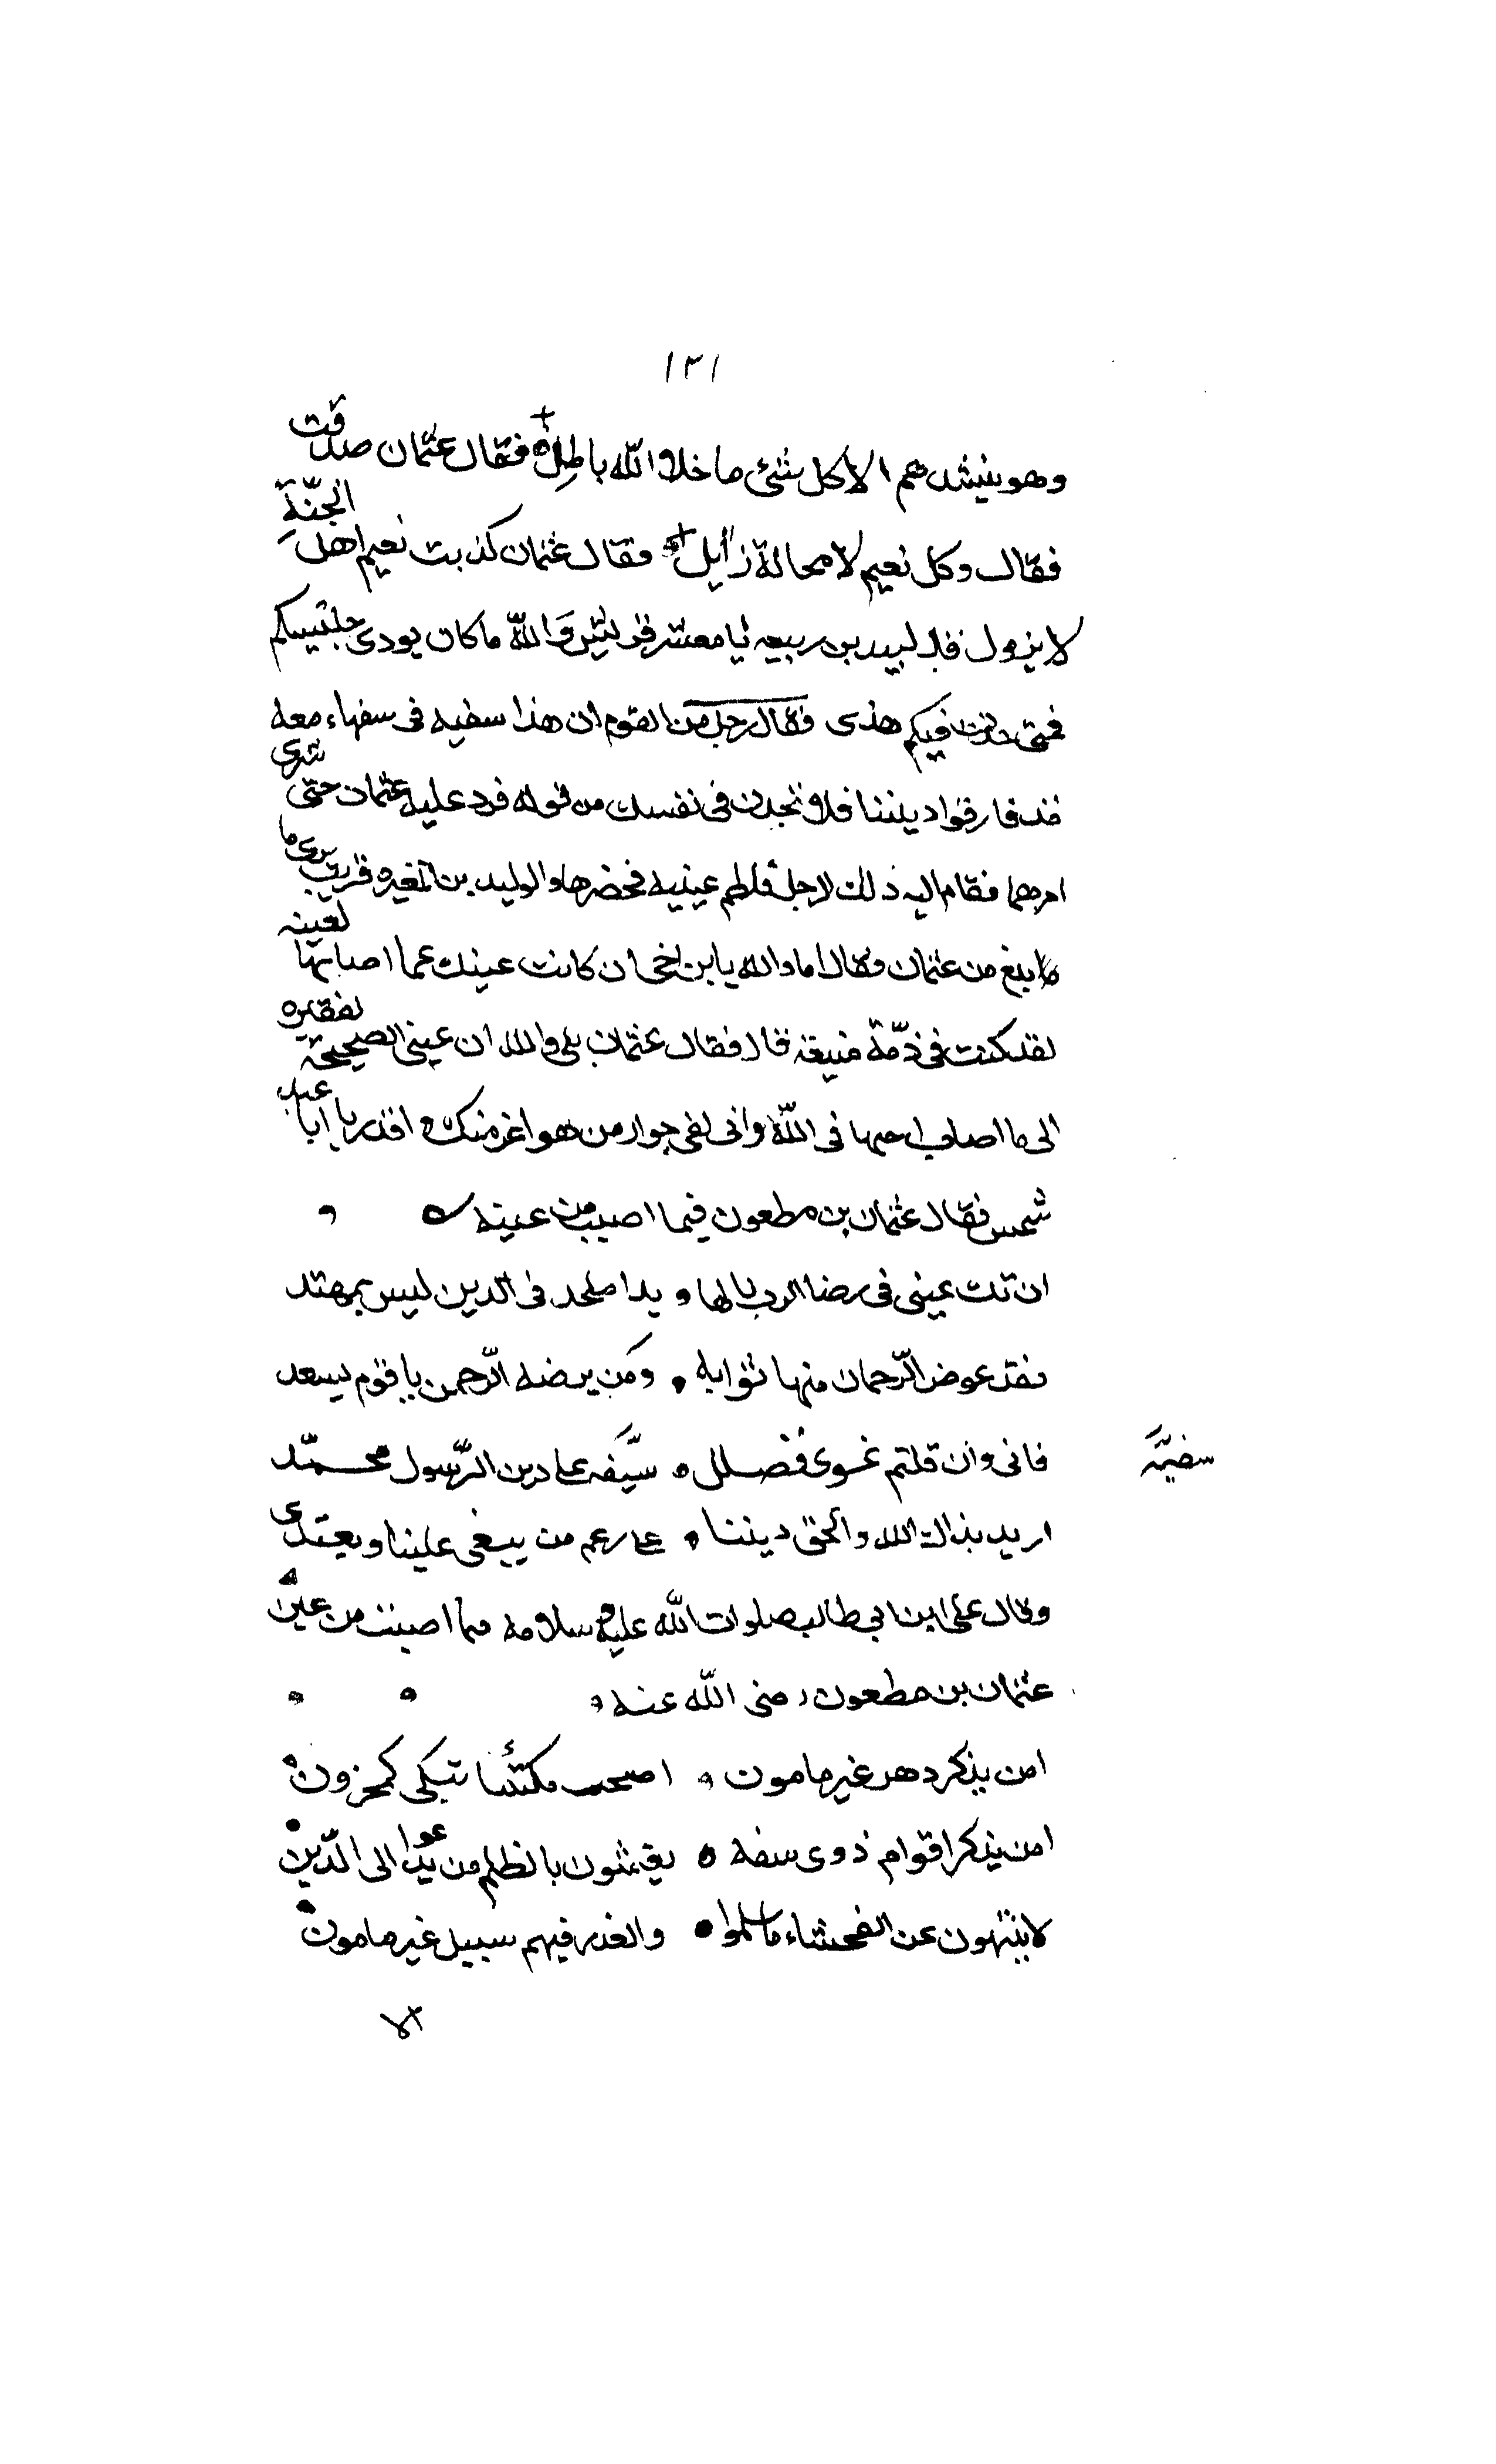 ١٣١
وهو ينشدهم الا كل شئ ما خلا الله باطِلُ فقال عثمان صدقت
فقال وكل نعيم لا محالة زايل فقال عثمان كذبت نعيم اهل الجنّةِ
لا يزول فقال لبيد بن ربيعه يا معشر قريش وَاللّه ما كان يودى جليسكم
فمتى حدث فيكم هذى فقال رجل من القوم ان هذا سفيه فى سفهاء معه
قد فارقوا ديننا فلا تجدن فى نفسك من قوله فرد عليه عثمان حتى شرى
امرهما فقام اليه ذلك الرجل فلطم عينيه فخضرها والوليد بن المغيره قريب يرى ما
ما بلغ من عثمان وقال اما والله يا بن اخى ان كانت عينك عما اصابها لغينه
لقد كنت فى ذمّة منيعة قال فقال عثمان بلى والله ان عينى الصحيحة لفقيره
الى ما اصاب احتها فى اللّه وانى لفى جوار من هو اعز منك و اقدر يا ابا عبد
شمس فقال عثمان بن مطعون فيما اصيب من عينه
ان تك عينى فى رضا الرب نالها و يدا ملحد فى الدين ليس بمهتد
فقد عوض الرّحمان منها ثوابه و ومَن يرضه الرّحمن يا قوم يسعد
فانى وان قلتم غوى مضلل ه سَيّفه على دين الرّسول محمّد
سفيّهَ
اريد بذاك الله والحق ديننا ه على رعم من يبغى علينا ويعتدى
وقال على ابن ابي طالب صلوات اللّه عليه وسلامه فيما اصيبت من عين
عثمان بن مطعون رضى اللّه عنه ه
امن يذكر دهر غير مامون ه اصبحت مكتئبا تبكى كمحزون
امن يذكر اقوام ذوى سفه ه يغشون بالظلم من يدعوا الى الدّين
لا ينتهون عن الفحشاء ما سلموا ه والغدر فيهم سبيل غير مامون
الا